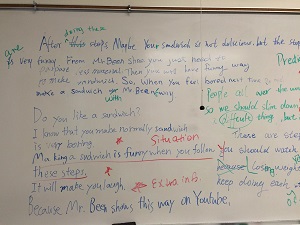 doing these
After these steps Maybe Your sandwich is not delicious. but the step
are is very funny. From Mr. Been show, you just need to
prepare material. Then you will have funny way
to make sandwich. So, when you feel bored next time
make a sandwich for Mr. Been way
with
Do you like a sandwich?
I know that you make normally sandwich
is very boring. Situation
Making a sandwich is funny when you follow
these steps.
It will make you laugh. Extra info.
Because Mr. Been shows this way on Youtube.
People all over the
so we should slim down
stuffs thing, but
These are steps
You should watch
because losing weight
keep doing each